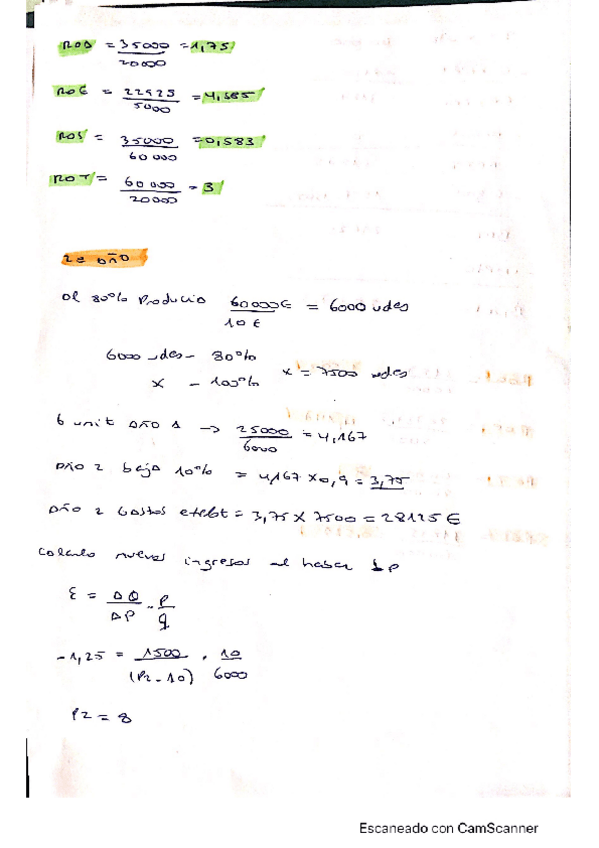 ROA = 35000/20000 = 1,75
ROE = 22925/5000 = 4,585
ROS = 35000/60000 = 0,583
ROT = 60000/20000 = 3
2º año
Al 80% Producía 60000€/10€ = 6000 udes
6000 udes - 80%
x - 100% x = 7500 udes
6 unit año 1 → 25000/6000 = 4,167
Año 2 baja 10% = 4,167 x 0,9 = 3,75
Año 2 Costes explot = 3,75 x 7500 = 28125 €
Calculo nuevos ingresos al haber ↓p
ε = ΔQ/ΔP · P/q
-1,25 = 1500/(P2-10) · 10/6000
P2 = 8
Escaneado con CamScanner